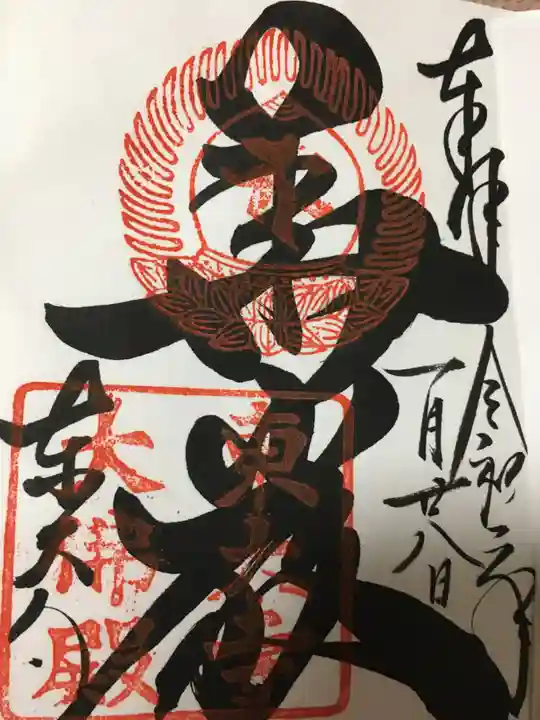 奉拝
令和二年
一月廿八日
華厳
東大寺
東大寺
大佛殿